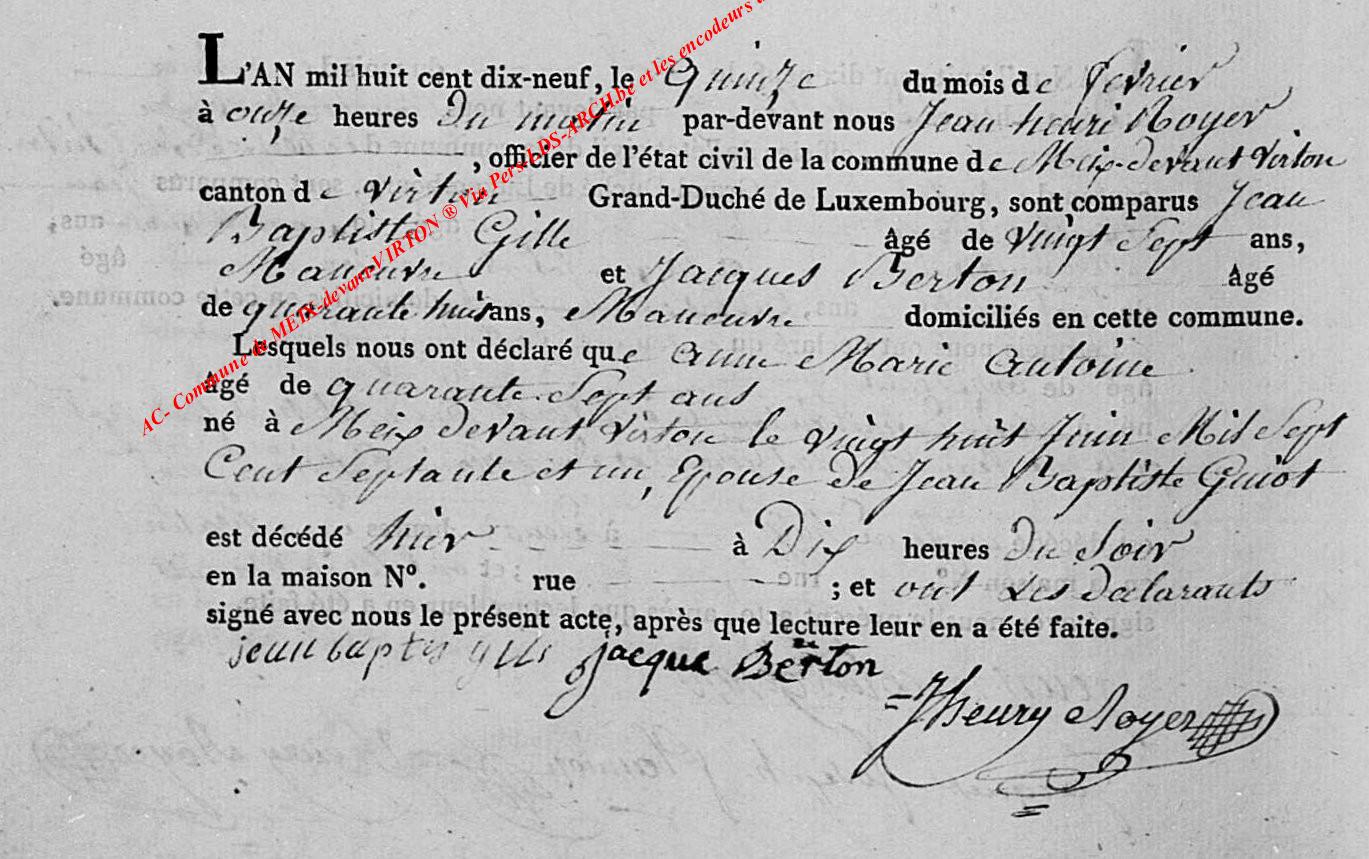 L'AN mil huit cent dix-neuf, le Quinze du mois de fevrier
à onze heures Du matin par-devant nous Jean henri Noyer
, officier de l'état civil de la commune de Meix devant Virton
canton de Virton Grand-Duché de Luxembourg, sont comparus Jean
Baptiste Gille âgé de vingt Sept ans,
Maneuvre et Jacques Berton âgé
de quarante huit ans, Maneuvre domiciliés en cette commune.
Lesquels nous ont déclaré que anne Marie antoine
âgé de quarante Sept ans
né à Meix devant Virton le vingt huit Juin Mil Sept
Cent Septante et un, Epouse de Jean Baptiste Guiot
est décédé hier à Dix heures Du Soir
en la maison N°. rue ; et ont Les Déclarants
signé avec nous le présent acte, après que lecture leur en a été faite.
jean baptis gille jacque Berton
JHenry Noyer
AC- Commune de MEIX-devant-VIRTON ® Via Pers-LDS-ARCH.be et les encodeurs